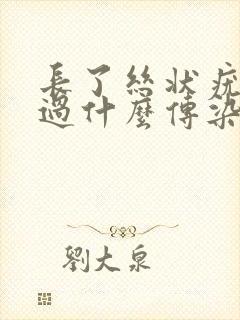 長了絲狀疣
過什麼傳染
劉大泉